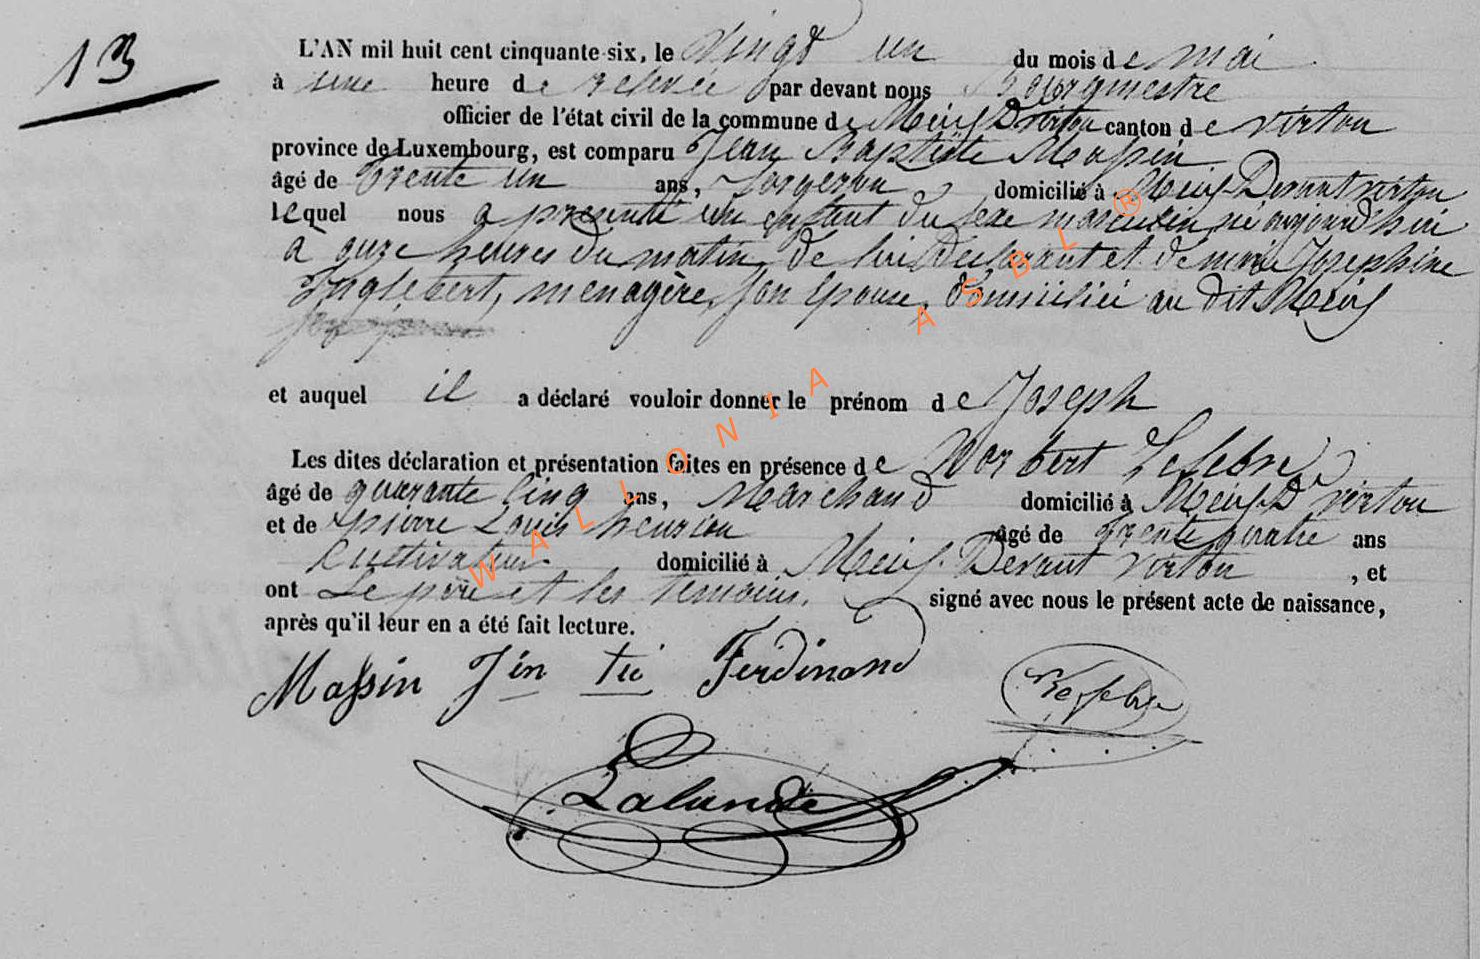 13
L'AN mil huit cent cinquante-six, le vingt un du mois de mai
à une heure de relevée par devant nous Bourgmestre
officier de l'état civil de la commune de Meix D virton canton de virton
province de Luxembourg, est comparu Jean Baptiste Massin
âgé de trente un ans, forgeron domicilié à Meix-Devant virton
lequel nous a presenté un enfant du sexe masculin, né aujourd'hui
à onze heures du matin, de lui déclarant et de marie Josephine
Inglebert, menagère, son épouse, domiciliée au dit Meix
et auquel il a déclaré vouloir donner le prénom de Joseph
Les dites déclaration et présentation faites en présence de Norbert Lefebvre
âgé de quarante cinq ans, Marchand domicilié à Meix-D virton
et de pierre Louis âgé de trente quatre ans
Cultivateur domicilié à Meix-Devant virton, et
ont Le père et les temoins, signé avec nous le présent acte de naissance,
après qu'il leur en a été fait lecture.
Massin Jin tie Ferdinand
Lefebvre
Lalande
WALLONIA ASBL ®